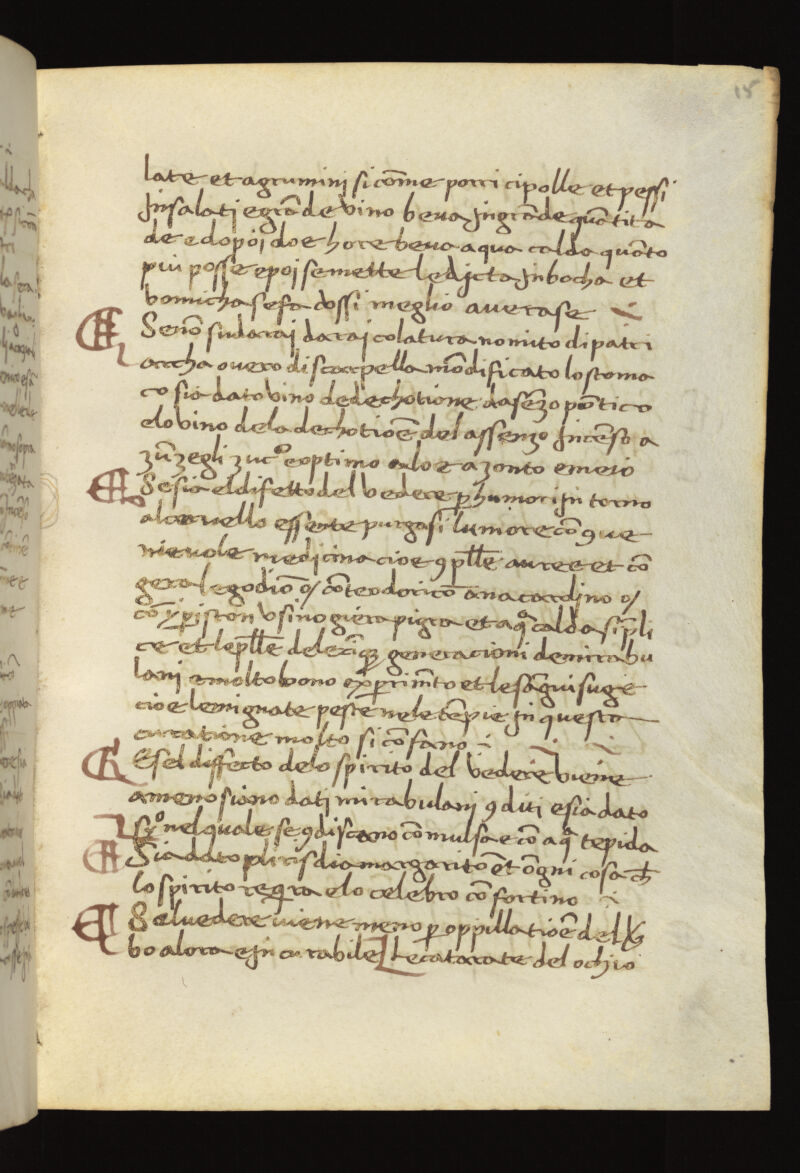 15
late et agrumini si cõme porri cipolle et pessi
Insalati e grãde vino beva In grãde quãtita
de e dopoj doe hore beva aqua calda quãto
piu posse e poj se mette le dicta In bocha et
vomicha se fa cossi meglio averase
Se nõ sudaraj daraj colatura no mito di patri
archa overo di scarpella mõdificato lo stoma
co sia dato vino de dechotione da sẽzo põtico
e lo vino de la dechotiõe del assenzo Incẽso
zẽzegli zuc° e optimo aloe azonto e meio
Se sia el difetto del vedere p humori In torno
al cervello essente purgasi lumiore cõ 9ue
nievole medicina cioe 9 plle auree et cõ
gera legodiõ o/ cõ teodoricõ anacardino o/
usino giera pigra et aq̃ calda sĩpli
ce et le plle dele generacioni de mirabu
lani e molto bono expimẽto et le sãguisuge
cioe le mignate peste nele tẽpie In questa
curatione molto si cõfano
E se el diffecto delo spirito del vedere viene
a meno siano dati mirabulani 9diti e sia dato
syº nel quale se 9discano cõ mulsa e cõ aq̃ tepida
Sia dato pliris dia margaritõ et õgni cosa ch
lo spirito reqira e lo celebro cõfortino
Se el vedere viene meno p oppillatiõe del
bo alora e Incurabile Le catarate del ochio